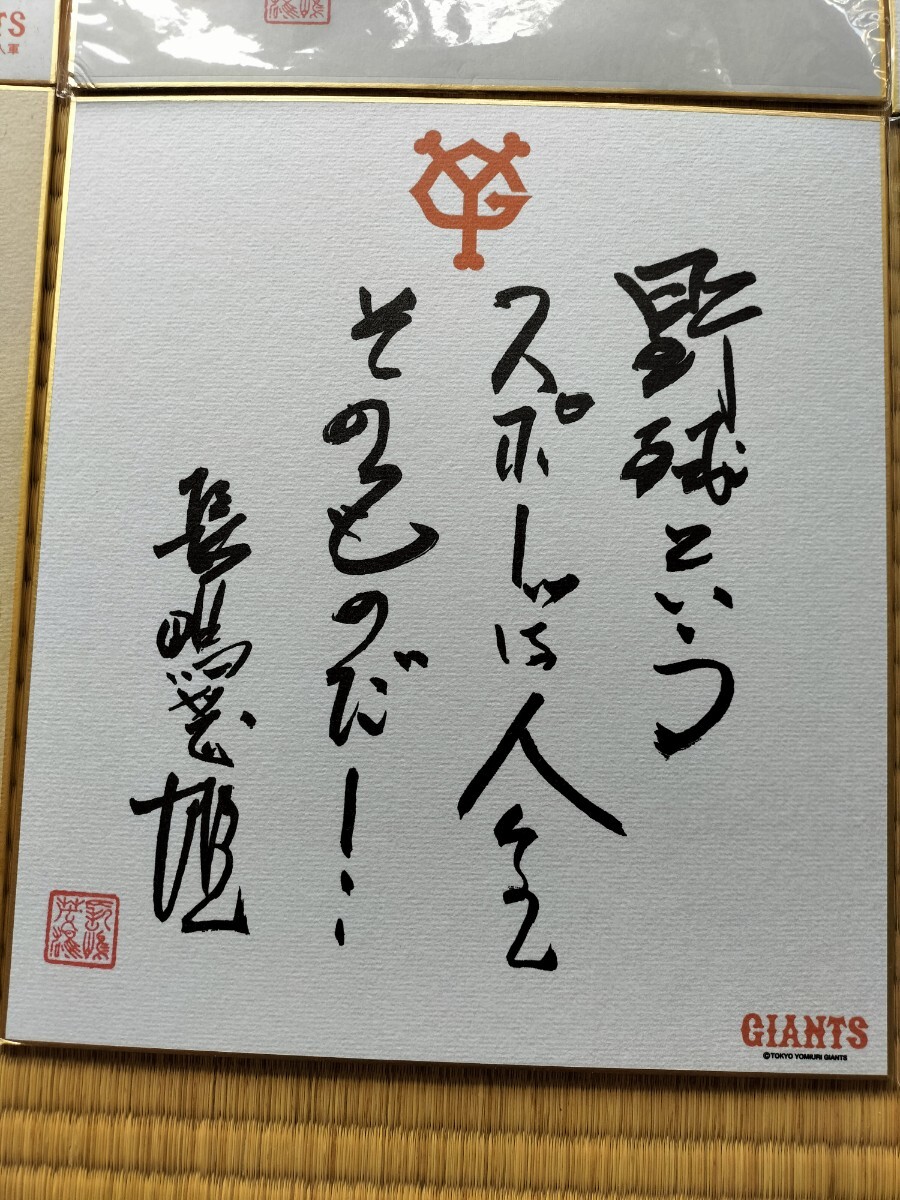 TS
人軍
野球という
スポーツは人生
そのものだ!
長嶋茂雄
GIANTS
©TOKYO YOMIURI GIANTS